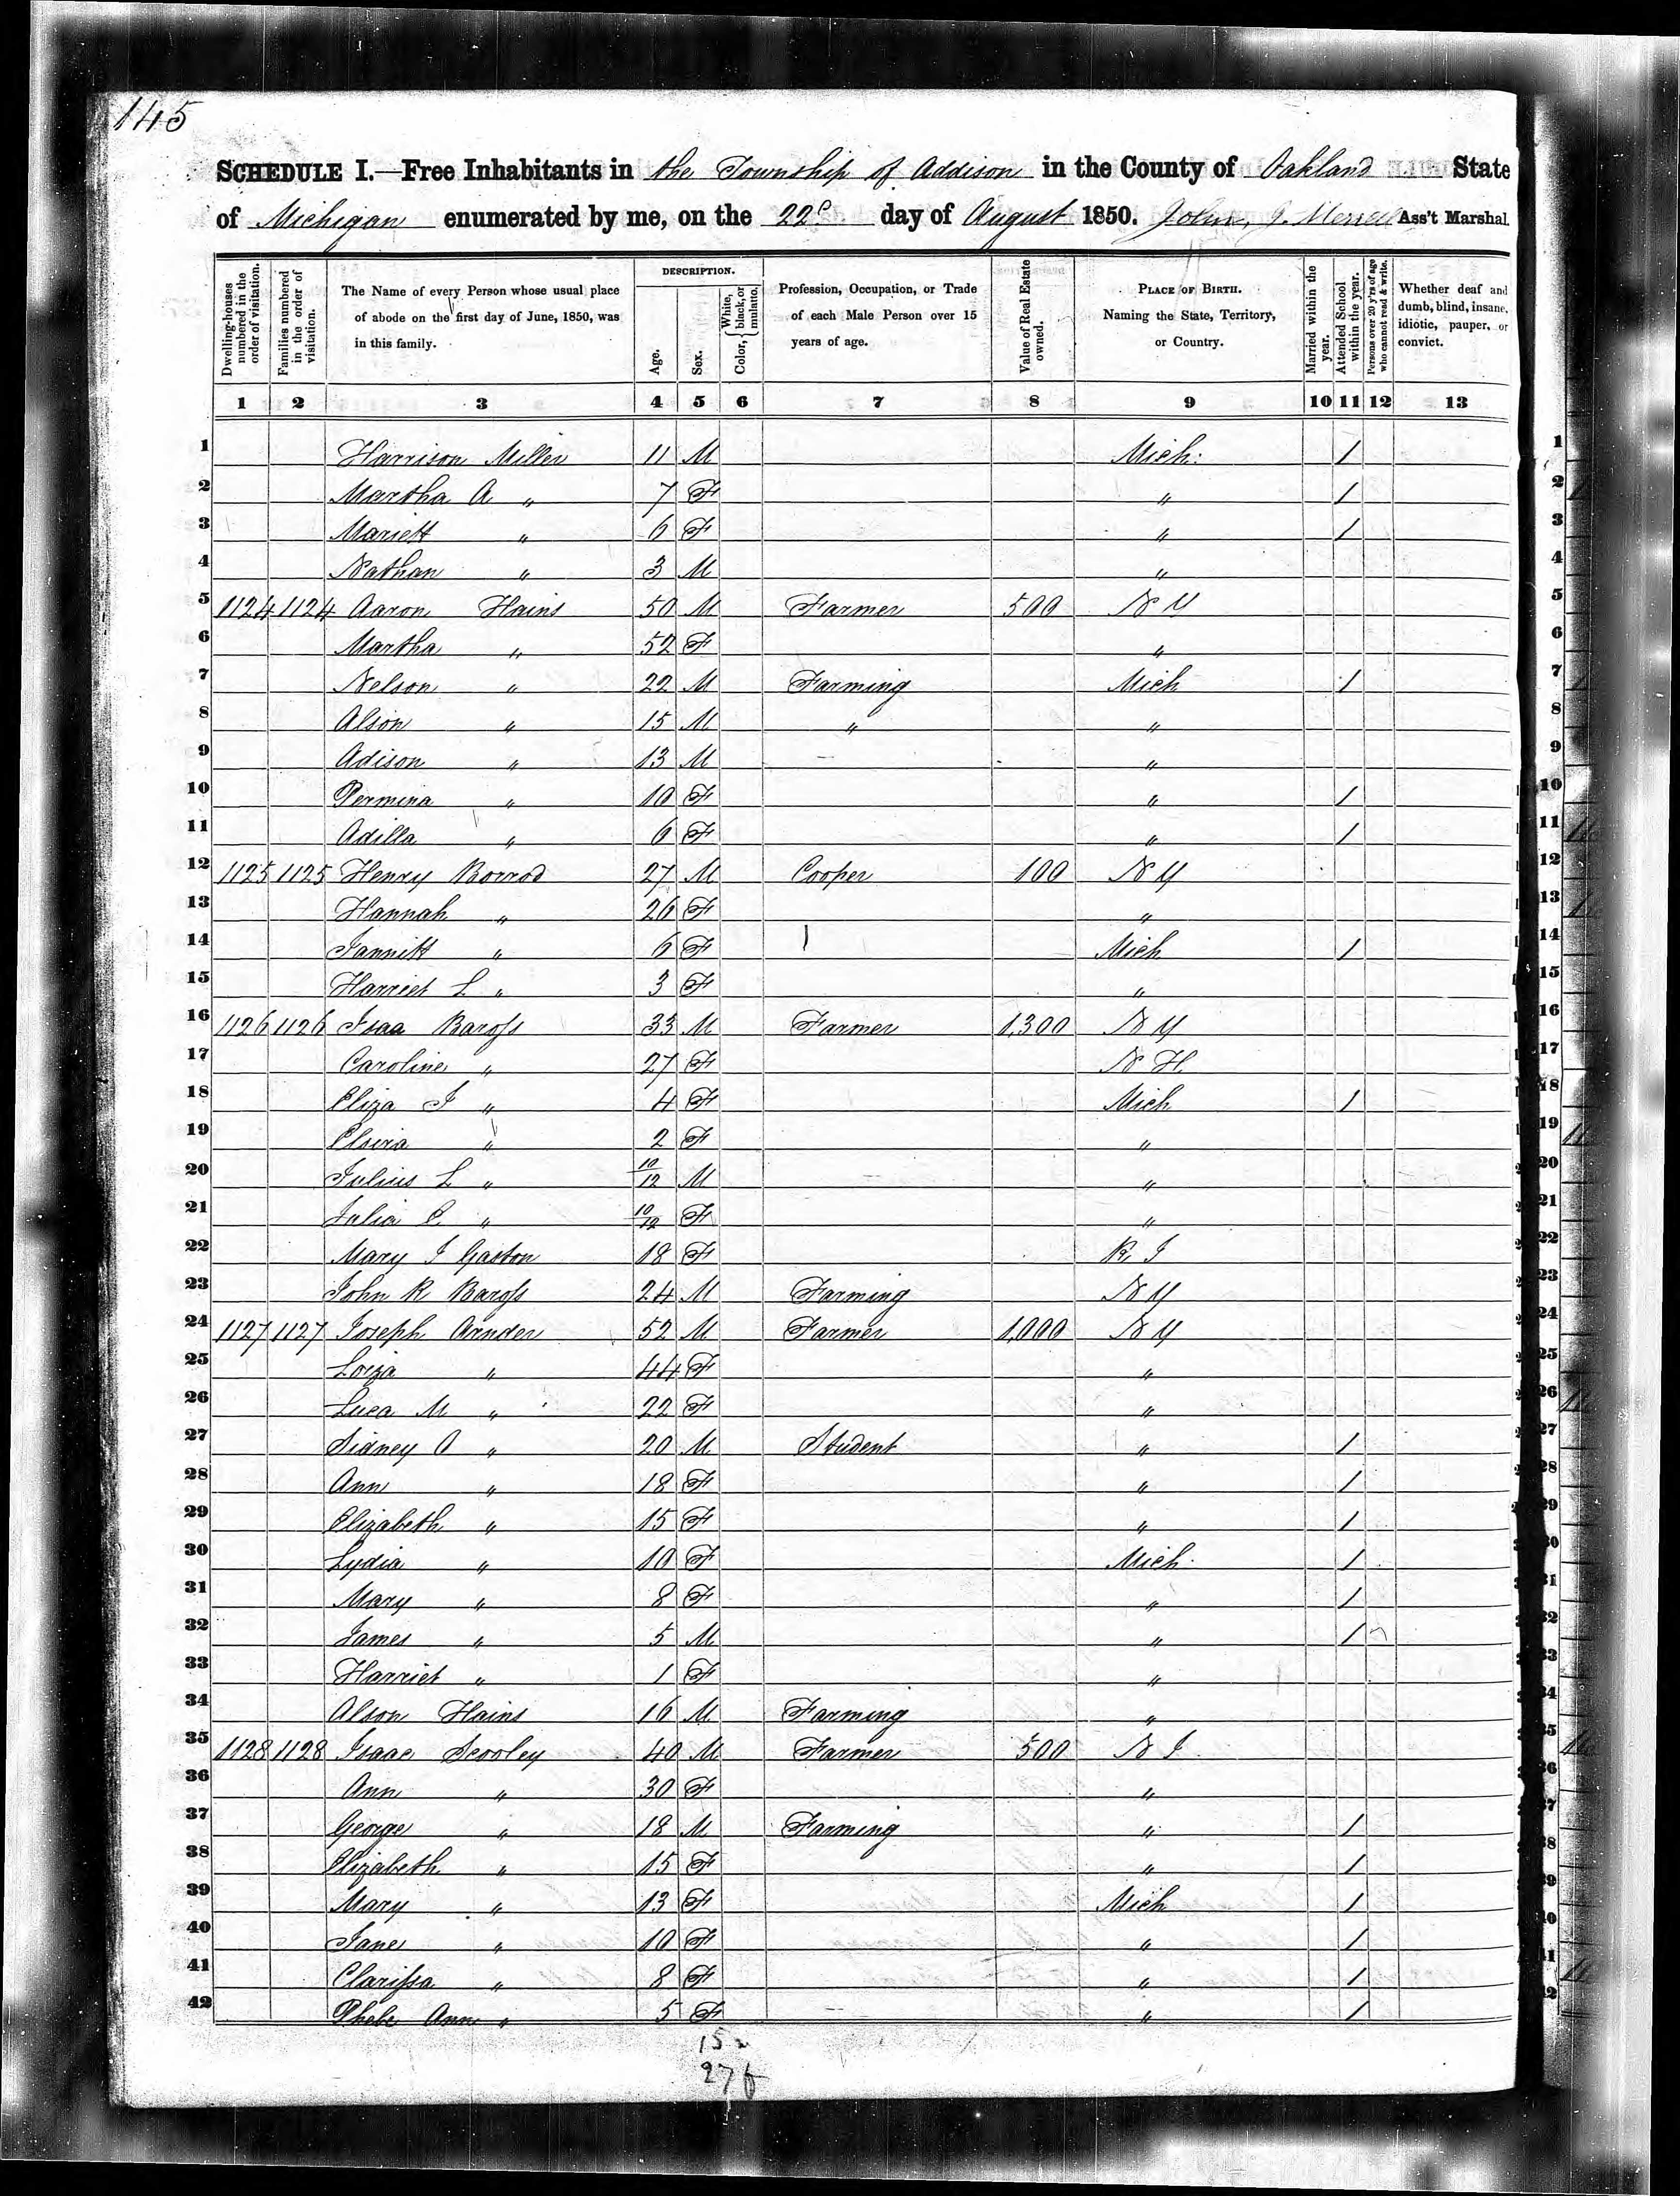 145
SCHEDULE I.—Free Inhabitants in the Township of Addison in the County of Oakland State
of Michigan enumerated by me, on the 22d day of August 1850. John J. Merrell Ass't Marshal.
Dwelling-houses numbered in the order of visitation.
Families numbered in the order of visitation.
The Name of every Person whose usual place of abode on the first day of June, 1850, was in this family.
DESCRIPTION.
Age.
Sex.
Color, { White, black, or mulatto.
Profession, Occupation, or Trade of each Male Person over 15 years of age.
Value of Real Estate owned.
PLACE OF BIRTH. Naming the State, Territory, or Country.
Married within the year.
Attended School within the year.
Persons over 20 y'rs of age who cannot read & write.
Whether deaf and dumb, blind, insane, idiotic, pauper, or convict.
1 2 3 4 5 6 7 8 9 10 11 12 13
1 Harrison Miller 11 M Mich: 1 1
2 Martha A " 7 F " 1 2
3 Mariett " 6 F " 1 3
4 Nathan " 3 M " 4
5 1124 1124 Aaron Hains 50 M Farmer 500 N Y 5
6 Martha " 52 F " 6
7 Nelson " 22 M Farming Mich 1 7
8 Alson " 15 M " " 8
9 Adison " 13 M – " 9
10 Permina " 10 F " 1 10
11 Adilla " 6 F " 1 11
12 1125 1125 Henry Borrod 27 M Cooper 100 N Y 12
13 Hannah " 26 F " 13
14 Jannitt " 6 F Mich 1 14
15 Harriet L " 3 F " 15
16 1126 1126 Isaa Bargss 33 M Farmer 1,300 N Y 16
17 Caroline " 27 F N H 17
18 Eliza J " 4 F Mich 1 18
19 Elvira " 2 F " 19
20 Julius L " 10/12 M " 20
21 Julia E " 10/12 F " 21
22 Mary J Gaston 18 F R I 22
23 John R Bargss 24 M Farming N Y 23
24 1127 1127 Joseph Arnder 52 M Farmer 1,000 N Y 24
25 Loiza " 44 F " 25
26 Luca M " 22 F " 26
27 Sidney O " 20 M Student " 1 27
28 Ann " 18 F " 1 28
29 Elizabeth " 15 F " 1 29
30 Lydia " 10 F Mich. 1 30
31 Mary " 8 F " 1 31
32 James " 5 M " 1 32
33 Harriet " 1 F " 33
34 Alson Hains 16 M Farming " 34
35 1128 1128 Isaac Scooley 40 M Farmer 500 N J 35
36 Ann " 30 F " 36
37 George " 18 M Farming " 1 37
38 Elizabeth " 15 F " 1 38
39 Mary " 13 F Mich 1 39
40 Jane " 10 F " 1 40
41 Clarissa " 8 F " 1 41
42 Phebe Ann " 5 F – " 1 42
15
276